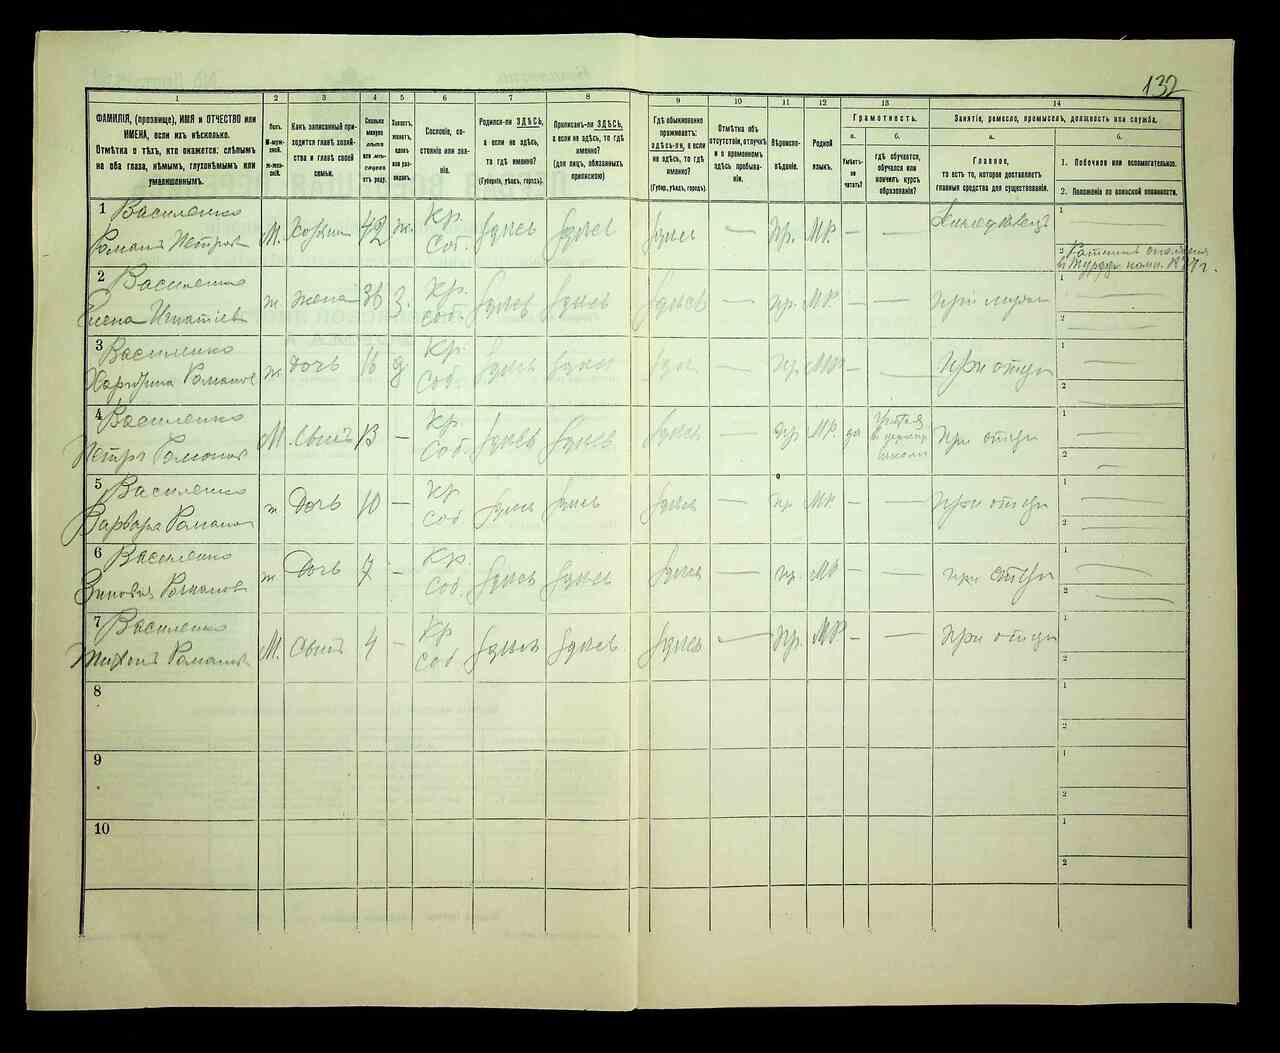 132
1 2 3 4 5 6 7 8 9 10 11 12 13 14
ФАМИЛІЯ, (прозвище), ИМЯ и ОТЧЕСТВО или
ИМЕНА, если ихъ нѣсколько.
Отмѣтка о тѣхъ, кто окажется: слѣпымъ
на оба глаза, нѣмымъ, глухонѣмымъ или
умалишеннымъ.
Полъ.
М-мужской.
Ж-женскій.
Какъ записанный приходится главѣ хозяйства и главѣ своей семьи.
Сколько минуло лѣтъ или мѣсяцевъ отъ роду.
Холостъ, женатъ, вдовъ или разведенъ?
Сословіе, состояніе или званіе.
Родился-ли ЗДѢСЬ,
а если не здѣсь,
то гдѣ именно?
(Губернія, уѣздъ, городъ).
Приписанъ-ли ЗДѢСЬ,
а если не здѣсь, то гдѣ
именно?
(для лицъ, обязанныхъ
припискою)
Гдѣ обыкновенно
проживаетъ:
здѣсь-ли, а если
не здѣсь, то гдѣ
именно?
(Губер., уѣздъ, городъ).
Отмѣтка объ
отсутствіи, отлучкѣ
и о временномъ
здѣсь пребываніи.
Вѣроисповѣданіе.
Родной
языкъ.
Грамотность.
а. б.
Умѣетъ-ли читать?
гдѣ обучается,
обучался или
кончилъ курсъ
образованія?
Занятіе, ремесло, промыселъ, должность или служба.
а. б.
Главное,
то есть то, которое доставляетъ
главныя средства для существованія.
1. Побочное или вспомогательное.
2. Положеніе по воинской повинности.
1 Василенко
Романъ Петров М. Хозяин 42 ж. Кр. Соб. Здѣсь Здѣсь Здѣсь — Пр. МР. Земледѣлецъ
2 Василенко
Елена Игнатіев ж. жена 36 З. Кр. Соб. Здѣсь Здѣсь Здѣсь — пр. МР — —
3 Василенко
Романов ж. дочь 16 д Кр. Соб. Здѣсь Здѣсь Здѣсь — Пр. МР — — При отцѣ
4 Василенко
Петръ Романов М. Сынъ 13 — Кр. Соб. Здѣсь Здѣсь Здѣсь — пр МР. да При отцѣ
5 Василенко
Варвара Романов ж Дочь 10 — Кр Соб Здѣсь Здѣсь Здѣсь — пр МР. — — При отцѣ
6 Василенко
Романов ж. Дочь 7 — Кр. Соб. Здѣсь Здѣсь Здѣсь — пр. МР — — при отцѣ
7 Василенко
Тихонъ Романов М. Сынъ 4 — Кр Соб. Здѣсь Здѣсь Здѣсь — Пр. МР — — При отцѣ
8
9
10